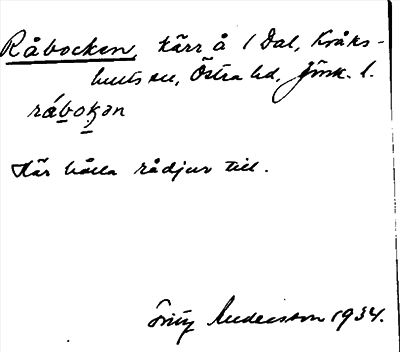 Råbocken, kärr å 1 Dal, Kråks-
hults sn, Östra hd, Jönk. l.
råbokən
Här hålla rådjur till.
Andersson 1934.